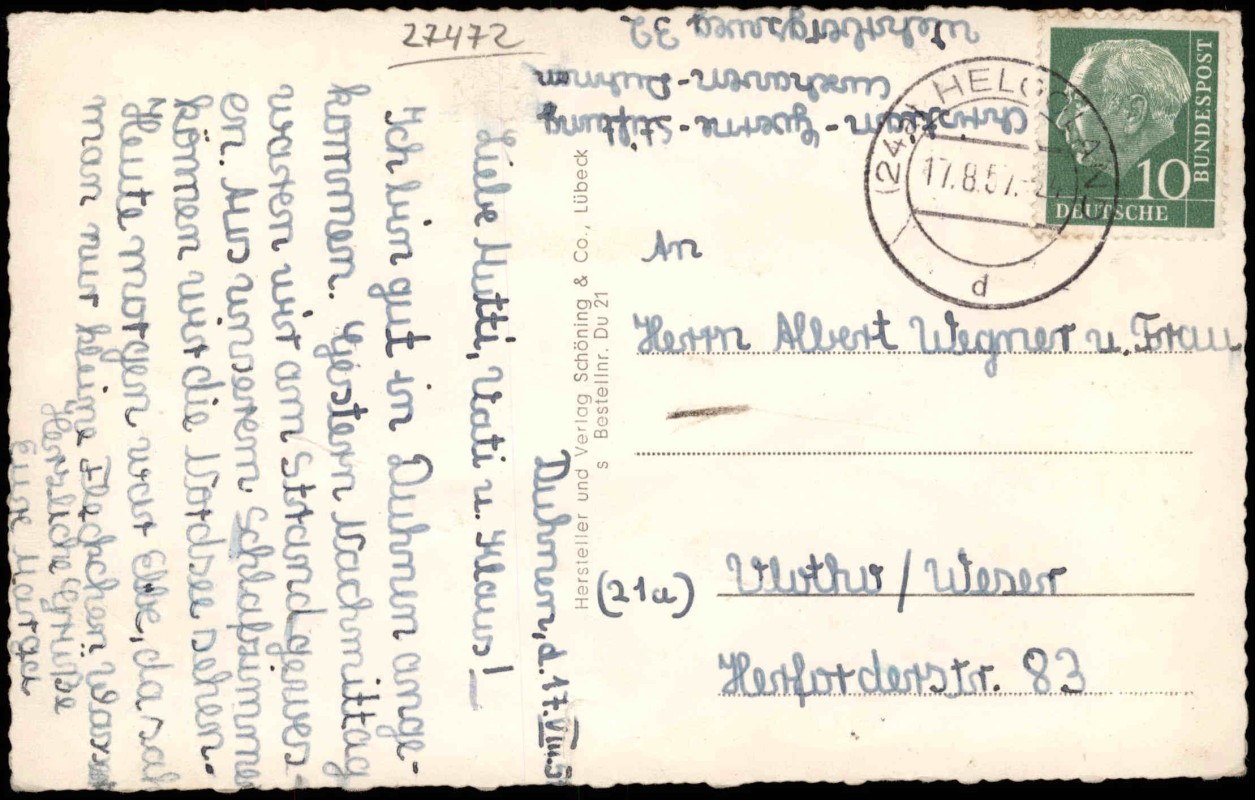 27472
Christian-Gverne-Stiftung
Cuxhaven-Duhnen
Wehrbergsweg 32
(24a) HELGOLAND
17.8.57.
d
10
DEUTSCHE
BUNDESPOST
Duhnen, d. 17.VIII.5
Liebe Mutti, Vati u. Klaus!
Ich bin gut in Duhnen ange-
kommen. Gestern Nachmittag
waren wir am Strand gewes-
en. Aus unserem Schlafzimme
können wir die Nordsee sehen.
Heute morgen war Ebbe, da sah
man nur kleine Fleckchen Wasser
Herzliche Grüße
Eure
Hersteller und Verlag Schöning & Co., Lübeck
s Bestellnr. Du 21
An
Herrn Albert Wegner u. Frau
(21a) Vlotho/Weser
Herforderstr. 83